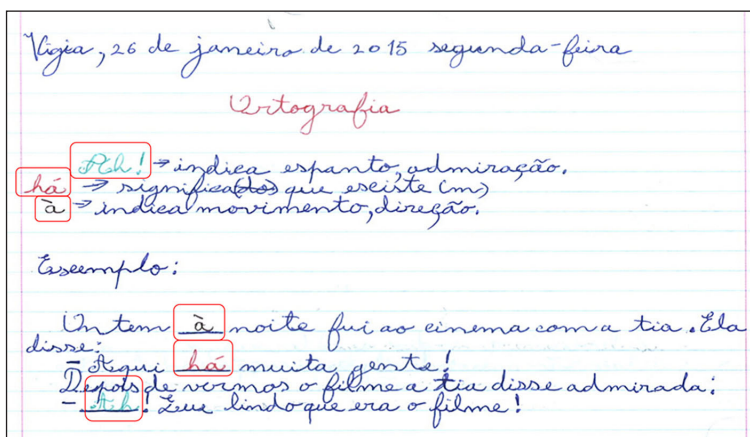 Vigia, 26 de janeiro de 2015 segunda-feira
Ortografia
Ah! → indica espanto, admiração.
há → significa(do) que existe (m)
à → indica movimento, direção.
Exemplo:
Ontem à noite fui ao cinema com a tia. Ela
disse:
- Aqui há muita gente!
Depois de vermos o filme a tia disse admirada:
- Ah! Que lindo que era o filme!